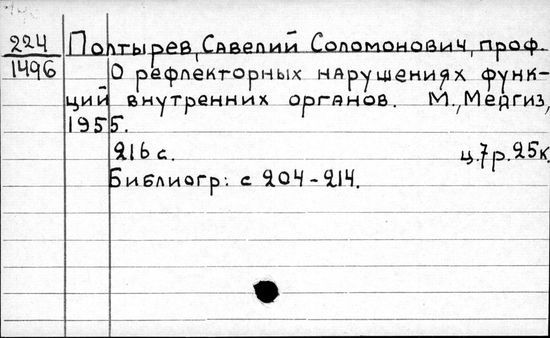 224 Полтырев, Савелий Соломонович, проф.
1496 О рефлекторных нарушениях функ-
ций внутренних органов. М., Медгиз,
1955.
216 с. ц. 7 р. 25 к.
Библиогр: с 204-214.